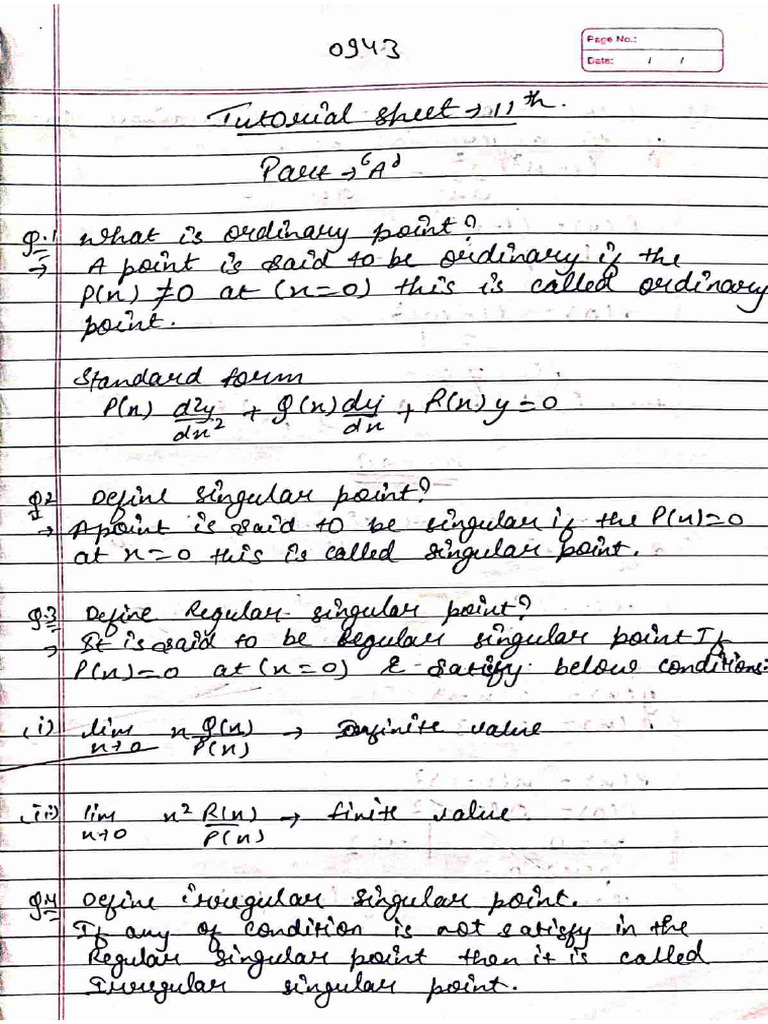 0943
Page No.:
Date: / /
Tutorial sheet → 11th.
Part → 'A'
Q.1 What is ordinary point?
→ A point is said to be ordinary if the
P(n) ≠ 0 at (n=0) this is called ordinary
point.
Standard form
P(n) d²y/dn² + Q(n) dy/dn + R(n) y = 0
Q2 Define singular point?
→ A point is said to be singular if the P(n)=0
at n=0 this is called singular point.
Q.3 Define Regular singular point?
→ It is said to be Regular singular point If
P(n)=0 at (n=0) & satisfy below conditions:
(i) lim n→0 n Q(n)/P(n) → value
(ii) lim n→0 n² R(n)/P(n) → finite value
Q.4 Define irregular singular point.
If any of condition is not satisfy in the
Regular singular point then it is called
Irregular singular point.